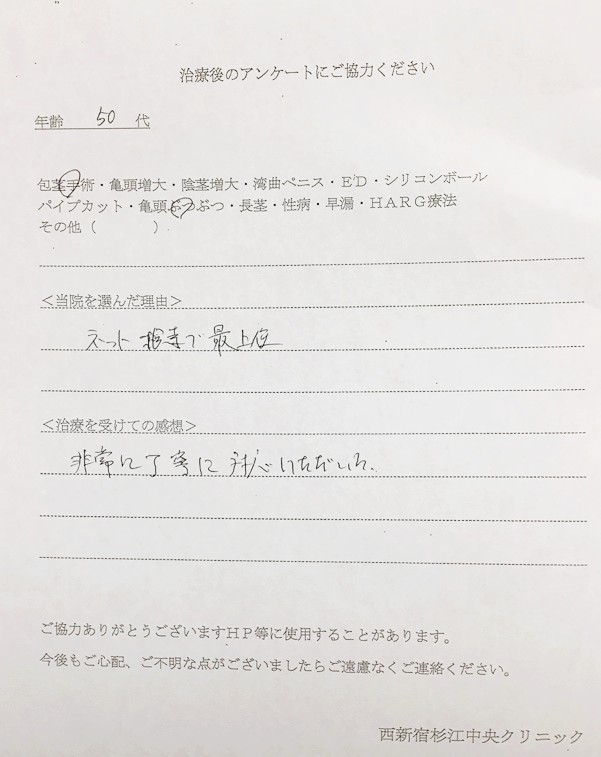 治療後のアンケートにご協力ください
年齢 50 代
包茎手術・亀頭増大・陰茎増大・湾曲ペニス・ED・シリコンボール
パイプカット・亀頭ぶつぶつ・長茎・性病・早漏・HARG療法
その他（ ）
＜当院を選んだ理由＞
ネット検索で最上位
＜治療を受けての感想＞
非常に丁寧に対応いただいた.
ご協力ありがとうございますHP等に使用することがあります。
今後もご心配、ご不明な点がございましたらご遠慮なくご連絡ください。
西新宿杉江中央クリニック